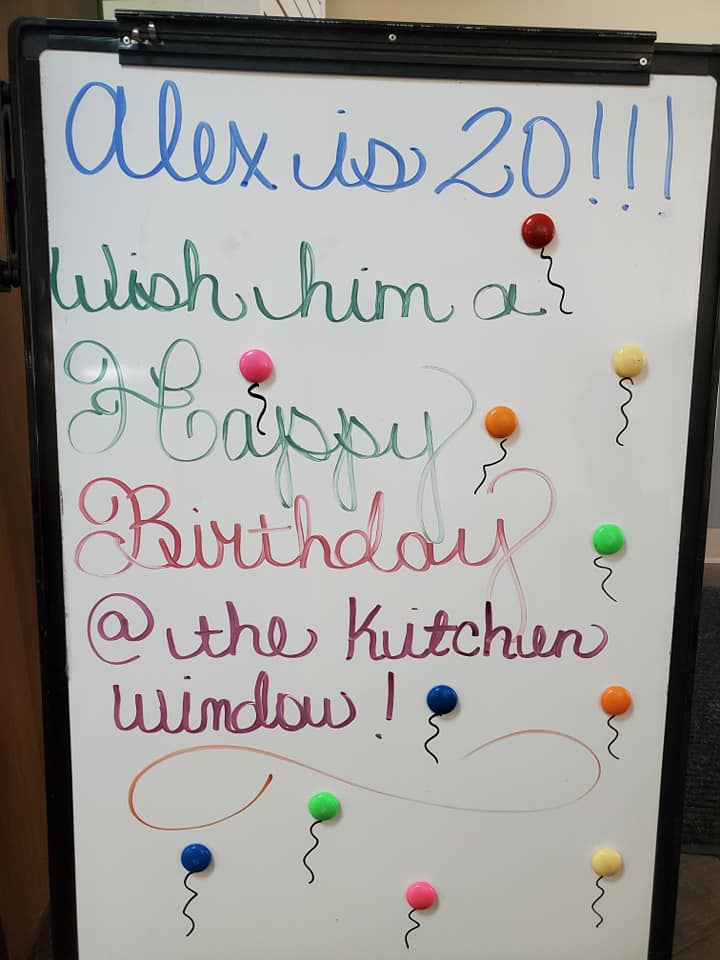 Alex is 20!!!
Wish him a
Happy
Birthday
@ the Kitchen
window!